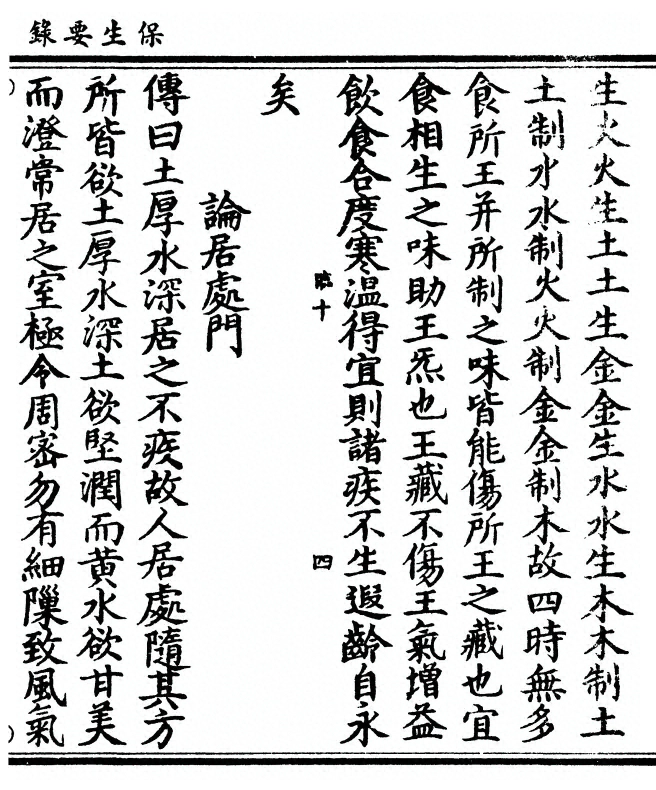 保生要錄
生火火生土土生金金生水水生木木制土
土制水水制火火制金金制木故四時無多
食所王并所制之味皆能傷所王之藏也宜
食相生之味助王炁也王藏不傷王氣增益
飲食合度寒溫得宜則諸疾不生遐齡自永
臨十
四
矣
論居處門
傳曰土厚水深居之不疾故人居處隨其方
所皆欲土厚水深土欲堅潤而黃水欲甘美
而澄常居之室極令周密勿有細隟致風氣